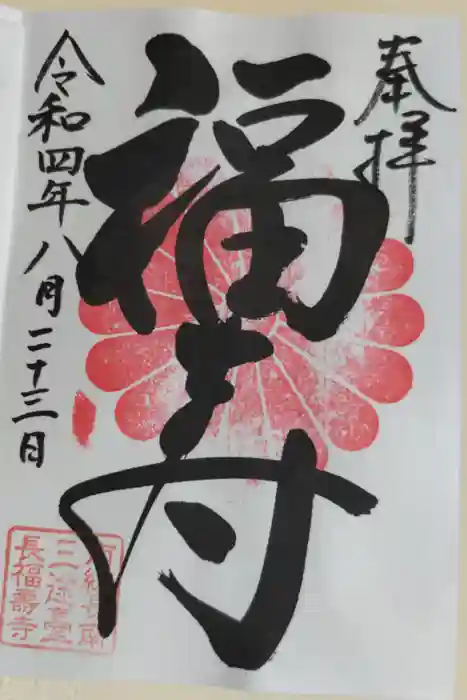 奉拝
福寿
令和四年八月二十三日
長福壽寺